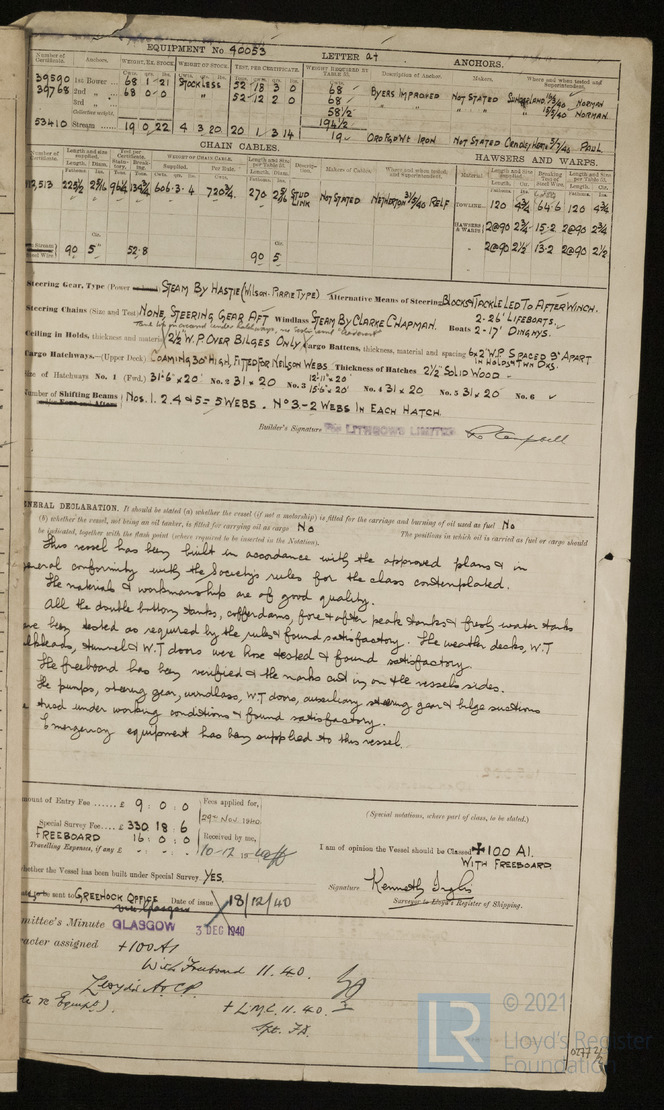 EQUIPMENT No 40053 LETTER at ANCHORS.
Number of Certificate. Anchors. WEIGHT, EX. STOCK. WEIGHT OF STOCK. TEST, PER CERTIFICATE. WEIGHT REQUIRED BY TABLE 53. Description of Anchor. Makers. Where and when tested and Superintendent.
39590 1st Bower 68 1 21 STOCKLESS 52 18 3 0 68 BYERS IMPROVED NOT STATED SUNDERLAND NORMAN
39768 2nd " 68 0 0 " 52 12 2 0 68 " " " " NORMAN
3rd " 58½
Collective weight. 194½
53410 Stream 19 0 22 4 3 20 20 1 3 14 19 ORD FGD WT IRON NOT STATED CRADLEY HEATH 5/7/40 PAUL
CHAIN CABLES. HAWSERS AND WARPS.
225½ 2 5/16 606.3.4 720¾ 270 2 5/16 STUD LINK NOT STATED NETHERTON 31/5/40 RELF
TOWLINE 120 4¾ 64.6 120 4¾
HAWSERS & WARPS 2@90 2¾ 15.2 2@90 2¾
" 2@90 2½ 13.2 2@90 2½
90 5" 52.8 90 5
Steering Gear, Type (Power STEAM BY HASTIE (WILSON-PIRRIE TYPE) Alternative Means of Steering BLOCKS & TACKLE LED TO AFTER WINCH.
Steering Chains (Size and Test) NONE, STEERING GEAR AFT Windlass STEAM BY CLARKE CHAPMAN. Boats 2-26' LIFEBOATS. 2-17' DINGHYS.
Ceiling in Holds, thickness and material 2½" W.P. OVER BILGES ONLY Cargo Battens, thickness, material and spacing 6x2" W.P. SPACED 9" APART IN HOLDS & TWN DKS.
Cargo Hatchways.—(Upper Deck) COAMING 30" HIGH, FITTED FOR NEILSON WEBS Thickness of Hatches 2½" SOLID WOOD
Size of Hatchways No. 1 (Fwd.) 31'-6" x 20' No. 2 31 x 20 No. 3 12'-11" x 20' 15'-6" x 20' No. 4 31 x 20 No. 5 31 x 20' No. 6
Number of Shifting Beams NOS. 1. 2. 4 & 5 = 5 WEBS. NO 3 - 2 WEBS IN EACH HATCH.
Builder's Signature LITHGOWS LIMITED Campbell
GENERAL DECLARATION. It should be stated (a) whether the vessel (if not a motorship) is fitted for the carriage and burning of oil used as fuel No
(b) whether the vessel, not being an oil tanker, is fitted for carrying oil as cargo No The positions in which oil is carried as fuel or cargo should
be indicated, together with the flash point (where required to be inserted in the Notation).
This vessel has been built in accordance with the approved plans & in
general conformity with the Society's rules for the class contemplated.
The materials & workmanship are of good quality.
All the double bottom tanks, cofferdams, fore & after peak tanks & fresh water tanks
have been tested as required by the rules & found satisfactory. The weather decks, W.T
bulkheads, tunnel & W.T doors were hose tested & found satisfactory.
The freeboard has been verified & the marks cut in on the vessel's sides.
The pumps, steering gear, windlass, W.T doors, auxiliary steering gear & bilge suctions
tried under working conditions & found satisfactory.
Emergency equipment has been supplied to this vessel.
Amount of Entry Fee £ 9 : 0 : 0 Fees applied for, (Special notations, where part of class, to be stated.)
Special Survey Fee £ 330 18 : 6 29th Nov 1940
FREEBOARD 16 : 0 : 0 Received by me, I am of opinion the Vessel should be Classed +100 A1.
Travelling Expenses, if any £ 10-12 1940 WITH FREEBOARD
Whether the Vessel has been built under Special Survey YES. Signature Kenneth Inglis
to be sent to GREENOCK OFFICE Date of issue 18/12/40 Surveyor to Lloyd's Register of Shipping.
via Glasgow
Committee's Minute GLASGOW 3 DEC 1940
Character assigned +100 A1
With Freeboard 11.40.
Lloyd's A & C P.
+ LMC 11.40.
Spt. F.D.
LR © 2021
Lloyd's Register
Foundation